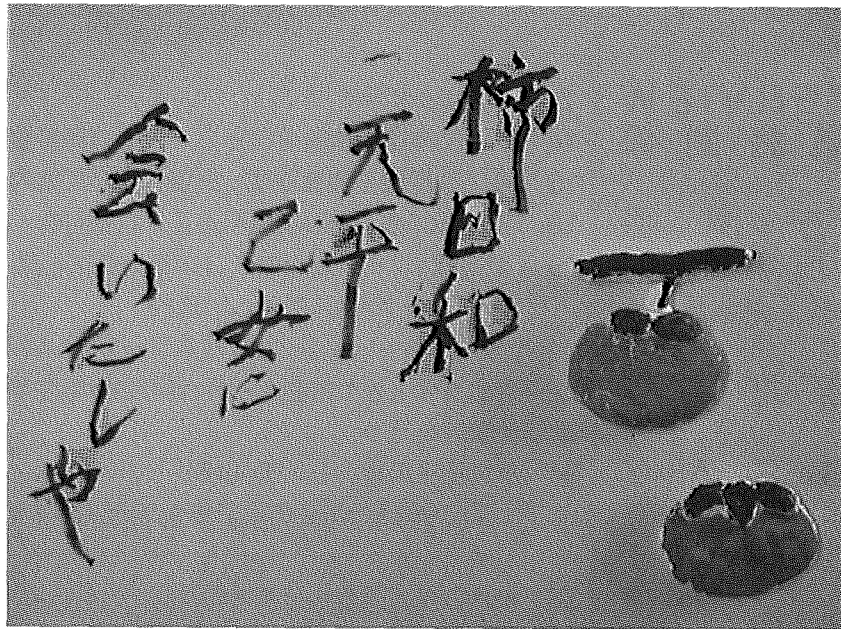 柿日和
天平
乙女に
会いたし也